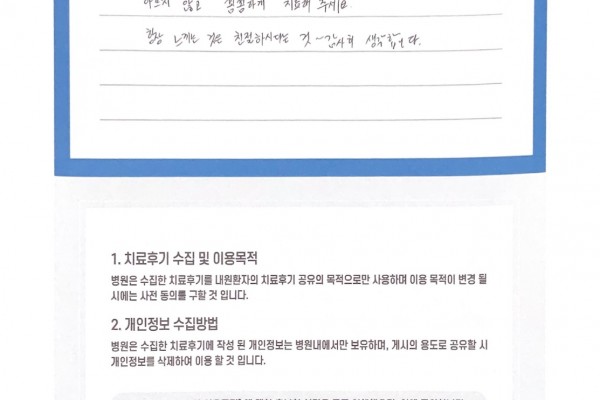 아프지 않고 꼼꼼하게 치료해 주세요.
항상 느끼는 것은 친절하시다는 것 ~ 감사히 생각합니다.
1. 치료후기 수집 및 이용목적
병원은 수집한 치료후기를 내원환자의 치료후기 공유의 목적으로만 사용하며 이용 목적이 변경 될
시에는 사전 동의를 구할 것 입니다.
2. 개인정보 수집방법
병원은 수집한 치료후기에 작성 된 개인정보는 병원내에서만 보유하며, 게시의 용도로 공유할 시
개인정보를 삭제하여 이용 할 것 입니다.